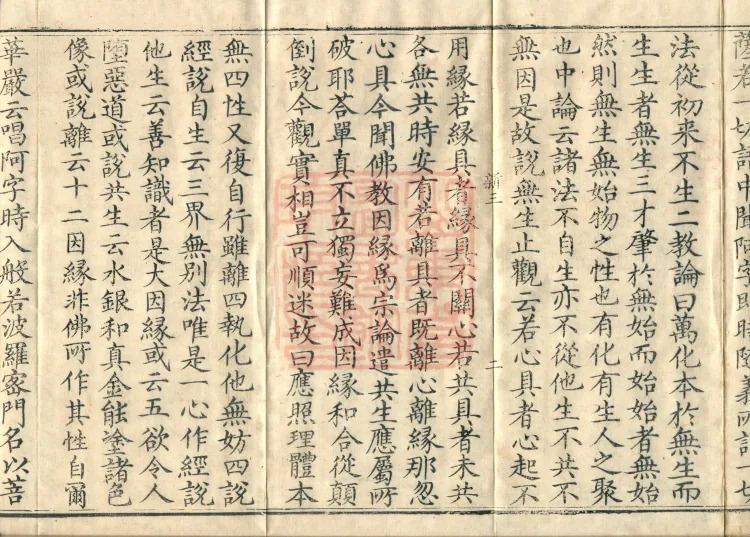 薩卷一切語中聞阿字即時隨義所謂一切
法從初来不生二教論曰萬化本於無生而
生生者無生三才肇於無始而始始者無始
然則無生無始物之性也有化有生人之聚
也中論云諸法不自生亦不從他生不共不
無因是故説無生止觀云若心具者心起不
新三
二
用緣若緣具者緣具不關心若共具者未共
各無共時安有若離具者既離心離緣那忽
心具今聞佛教因緣爲宗論遣共生應屬所
破耶荅單真不立獨妄難成因緣和合從顛
倒説今觀實相豈可順迷故曰應照理體本
無四性又復自行雖離四執化他無妨四説
經説自生云三界無別法唯是一心作經説
他生云善知識者是大因緣或云五欲令人
墮惡道或説共生云水銀和真金能塗諸色
像或説離云十二因緣非佛所作其性自爾
華嚴云唱阿字時入般若波羅密門名以菩